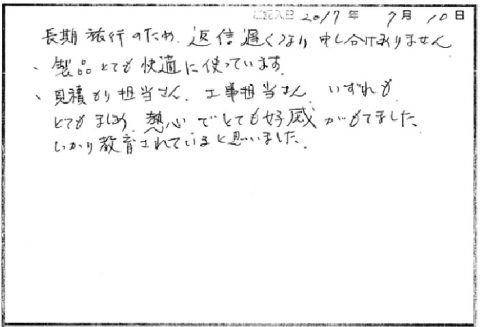 ご記入日 2017年 9月 10日
長期旅行のため、返信遅くなり申し分けありません
、製品とても快適に使っています。
、見積り担当さん、工事担当さん、いずれも
とても 熱心でとても好感がもてました。
しっかり教育されていると思いました。